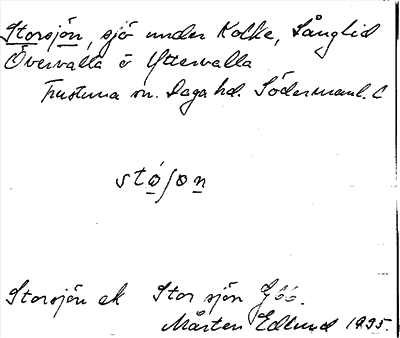 Storsjön, sjö under Kolke, Sånglid
Övervalla o Yttervalla
Trustuna sn. Daga hd. Södermanl. C
stoʃon
Storsjön ek Stor sjön G66.
Mårten Edlund 1935.